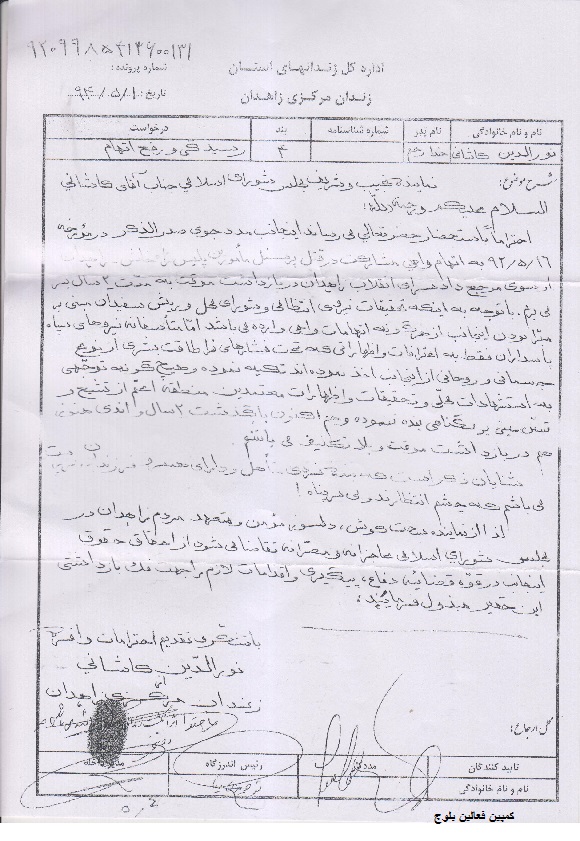 ۹۲۰۹۹۸۵۴۱۴۶۰۰۱۳۱
شماره پرونده:
اداره کل زندانهای استان
تاریخ: ۹۴/۵/۱
زندان مرکزی زاهدان
نام و نام خانوادگی نام پدر شماره شناسنامه بند درخواست
نورالدین کاشانی ۴ رسیدگی و رفع اتهام
شرح موضوع: نماینده نجیب و شریف مجلس شورای اسلامی جناب آقای کاشانی
السلام علیکم و رحمة الله؛
احتراماً باستحضار حضرتعالی می رساند اینجانب مددجوی صدرالذکر در مورخه
۹۲/۵/۱۶ به اتهام واهی مشارکت در قتل پرسنل مأمورین پلیس
از سوی مرجع دادسرای انقلاب زاهدان در بازداشت موقت به مدت ۲ سال بسر
می برم. باتوجه به اینکه تحقیقات نیروی انتظامی و شورای محل و ریش سفیدان مبنی بر
مبرّا بودن اینجانب از هرگونه اتهامات واهی وارده می باشد امّا متأسفانه نیروهای سپاه
پاسداران فقط به اعترافات و اظهاراتی که تحت فشارهای فراطاقت بشری از نوع
جسمانی و روحانی از اینجانب اخذ نموده اند تکیه نموده و هیچ گونه توجّهی
به استشهادات محلی و تحقیقات و اظهارات معتمدین منطقه اعم از تشیع و
تسنن مبنی بر بیگناهی بنده ننموده و هم اکنون با گذشت ۲ سال و اندی هنوز
هم در بازداشت موقت و بلاتکلیف می باشم.
شایان ذکر است که بنده فردی متأهل و دارای همسر و فرزندان
می باشم که چشم انتظارند و بی سرپناه!
لذا از نماینده سخت کوش، دلسوز، مؤمن و متعهد مردم زاهدان در
مجلس شورای اسلامی عاجزانه و محترمانه تقاضا می شود از احقاق حقوق
اینجانب در قوّه قضائیه دفاع، پیگیری و اقدامات لازم را جهت فک بازداشتی
این حقیر مبذول فرمایید؛
باتشکر و تقدیم احترامات وافره
نورالدین کاشانی
زندان مرکزی زاهدان
محل ارجاع:
تایید کنندگان مددکار رئیس اندرزگاه مدیر داخله
نام و نام خانوادگی
کمپین فعالین بلوچ